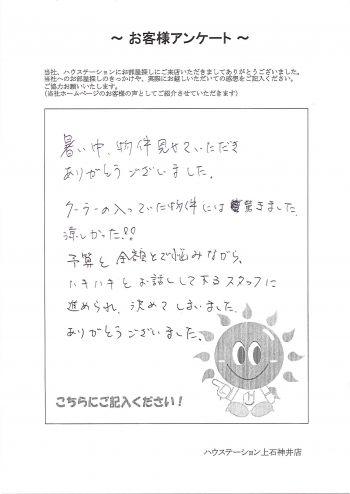 ～ お客様アンケート ～
当社、ハウステーションにお部屋探しにご来店いただきましてありがとうございました。
当社へのお部屋探しのきっかけや、実際にお越しいただいての感想をご記入ください。
ご協力お願いいたします。
(当社ホームページのお客様の声としてご紹介させていただきます)
暑い中、物件見せていただき
ありがとうございました。
クーラーの入っていた物件には驚きました
涼しかった!!
予算と金額とで悩みながら、
ハキハキとお話しして下さるスタッフに
進められ、決めてしまいました。
ありがとうございました。
こちらにご記入ください!
ハウステーション上石神井店